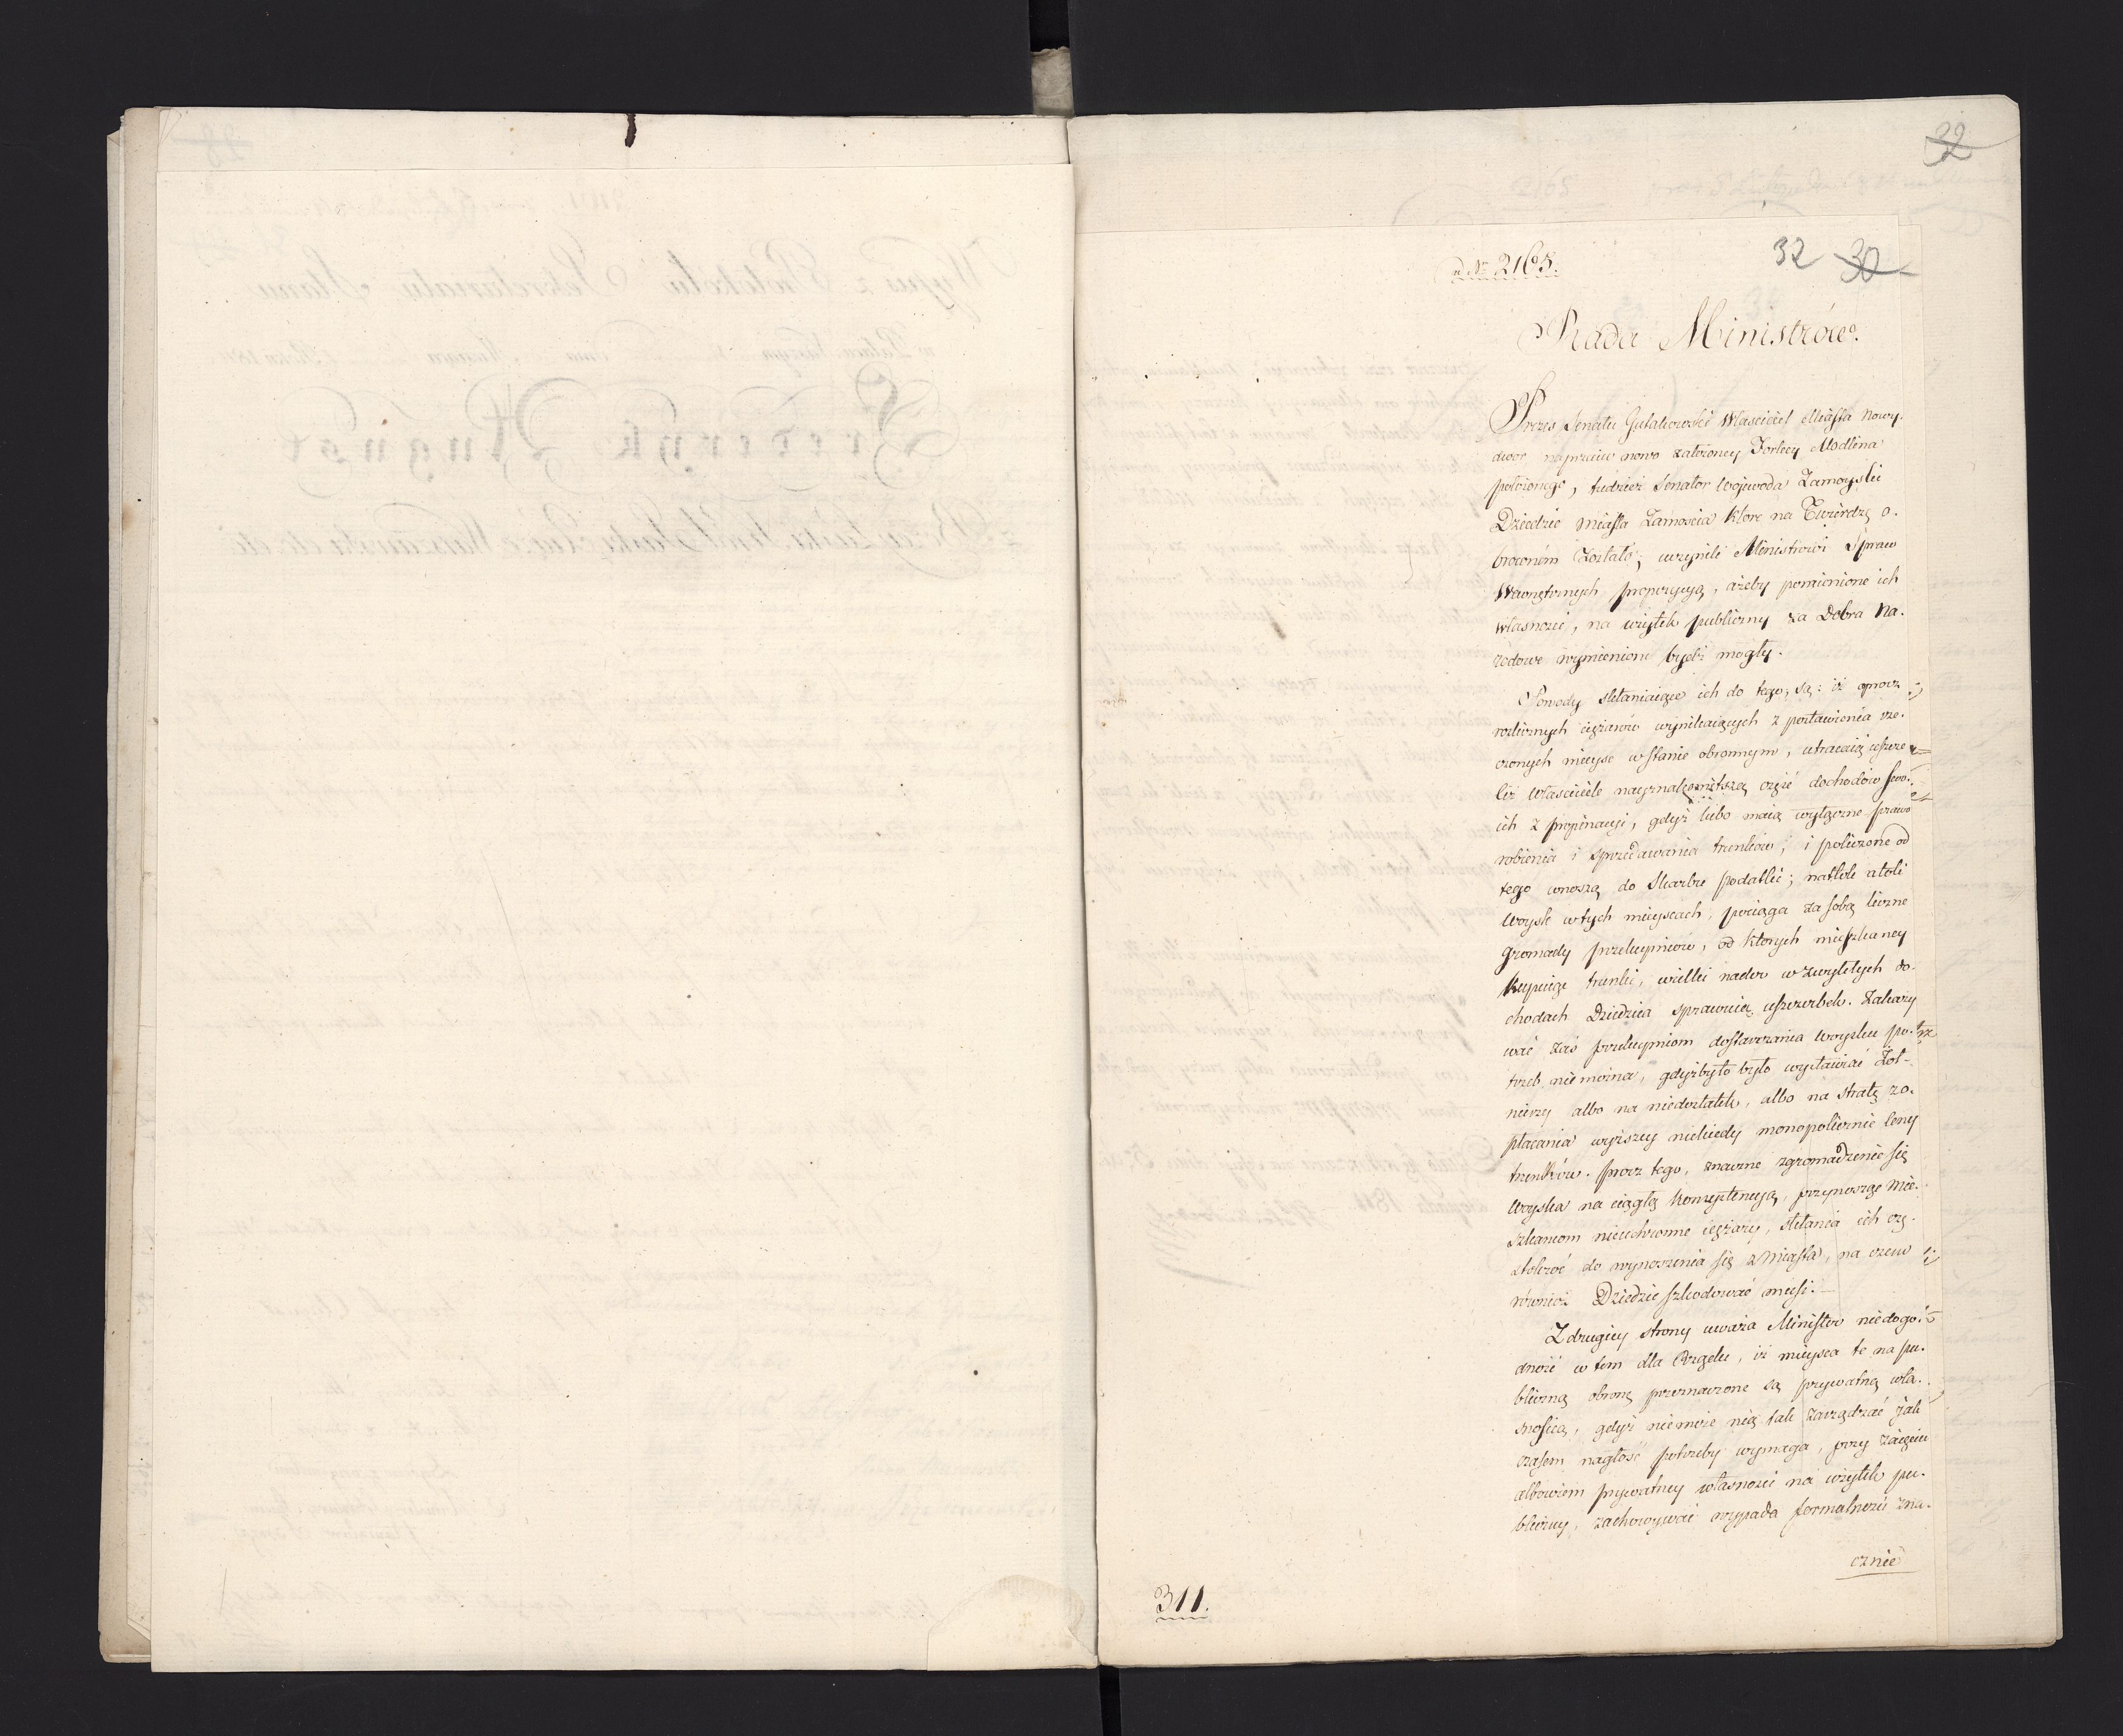 32
ad N 2165.
32 30
Rada Ministrów.
Prezes Senatu Gutakowski Właściciel Miasta Nowy-
dwor naprzeciw nowo założoney Fortecy Modlina
położonego, tudzież Senator Wojewoda Zamoyski
Dziedzic Miasta Zamościa które na Twierdzę o-
brócone zostało; uczynili Ministrowi Spraw
Wewnętrznych propozycyą, ażeby pomienione ich
własności, na użytek publiczny za Dobra Na-
rodowe wymienione bydź mogły.
Powody skłaniaiące ich do tego, są: iż oprócz
rozlicznych ciężarów wynikaiących z postawienia rze-
czonych mieysc w stanie obronnym, utracaią ieszcze
ciż Właściciele nayznakomitszą część dochodów swo-
ich z propinacyi, gdyż lubo maią wyłączne prawo
robienia i sprzedawania trunków, i policzone od
tego wnoszą do Skarbu podatki; natłok atoli
Woysk w tych mieyscach, pociąga za sobą liczne
gromady przekupniów, od których mieszkańcy
kupuiąc trunki, wielki nader w zwykłych do-
chodach Dziedzica sprawuią uszczerbek. Zakazy
wać zaś przekupniom dostarczania Woysku po-
trzeb niemożna, gdyżbyto było wystawiać Żoł-
nierzy albo na niedostatek, albo na stratę zo-
płacania wyższey niekiedy monopolicznie ceny
trunków. Prócz tego, znaczne zgromadzenie się
Woyska na ciągłą konsystencyą, przynosząc Mie-
szkańcom nieuchronne ciężary, skłania ich czę-
stokroć do wynoszenia się z Miasta, na czem
również Dziedzic szkodować musi. —
Z drugiey strony uważa Minister niedogo-
dność w tem dla Rządu, iż mieysca te na pu-
bliczną obronę przeznaczone są prywatną wła-
snością, gdyż niemoże nią tak zarządzać jak
czasem nagłość potrzeby wymaga, przy zaięciu
albowiem prywatney własności na użytek pu-
bliczny, zachowywać wypada formalności zna-
cznie
311.